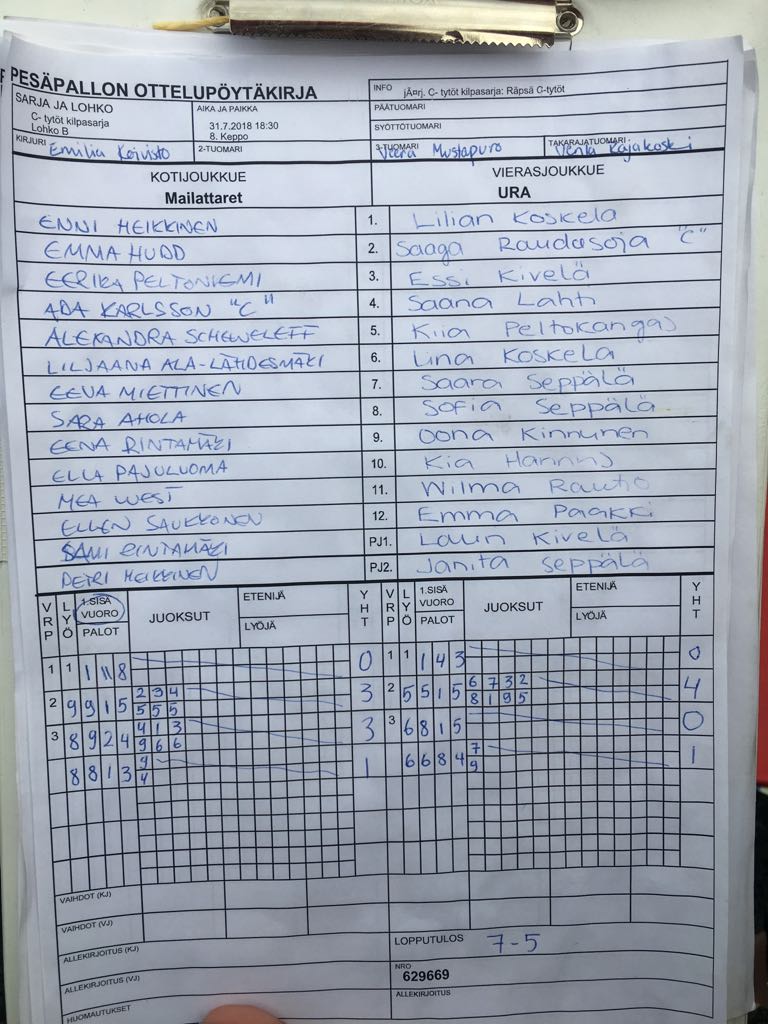 PESÄPALLON OTTELUPÖYTÄKIRJA
INFO jÃ¤rj. C- tytöt kilpasarja: Räpsä C-tytöt
SARJA JA LOHKO
C- tytöt kilpasarja
Lohko B
AIKA JA PAIKKA
31.7.2018 18:30
8. Keppo
PÄÄTUOMARI
SYÖTTÖTUOMARI
KIRJURI Emilia Koivisto
2-TUOMARI
3-TUOMARI Veera Mustapuro
TAKARAJATUOMARI Venla Kajakoski
KOTIJOUKKUE VIERASJOUKKUE
Mailattaret URA
ENNI HEIKKINEN 1. Lilian Koskela
EMMA HUDD 2. Saaga Raudasoja "C"
EERIKA PELTONIEMI 3. Essi Kivelä
ADA KARLSSON "C" 4. Saana Lahti
ALEXANDRA 5. Kiia Peltokangas
LILJAANA ALA-LÄHDESMÄKI 6. Lina Koskela
EEVA MIETTINEN 7. Saara Seppälä
SARA AHOLA 8. Sofia Seppälä
EENA RINTAMÄKI 9. Oona Kinnunen
ELLA PAJULUOMA 10. Kia
MEA WEST 11. Wilma Rautio
ELLEN SAUKKONEN 12. Emma Paakki
SAMI RINTAMÄKI PJ1. Lauri Kivelä
PETRI HEIKKINEN PJ2. Janita Seppälä
VRP LYÖ 1.SISÄ VUORO PALOT JUOKSUT ETENIJÄ LYÖJÄ YHT VRP LYÖ 1.SISÄ VUORO PALOT JUOKSUT ETENIJÄ LYÖJÄ YHT
1 1 1 11 8 0 1 1 1 4 3 0
2 9 9 1 5 2 3 4 3 2 5 5 1 5 6 7 3 2 4
5 5 5 8 1 9 5
3 8 9 2 4 4 1 3 3 3 6 8 1 5 0
9 6 6
8 8 1 3 9 1 6 6 8 4 7 1
4 9
VAIHDOT (KJ)
VAIHDOT (VJ)
ALLEKIRJOITUS (KJ) LOPPUTULOS 7-5
ALLEKIRJOITUS (VJ) NRO
629669
HUOMAUTUKSET ALLEKIRJOITUS